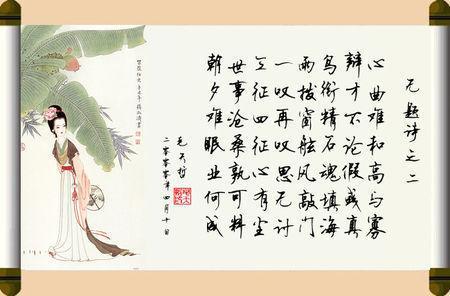 无题诗之二
心曲难和高与寡
辩才不论假或真
鸟衔精石魂填海
雨拨窗舷风敲门
一叹再叹思无计
三征四征心有尘
世事沧桑孰可料
朝夕难眠业何成
毛天哲
二零零零年四月十日